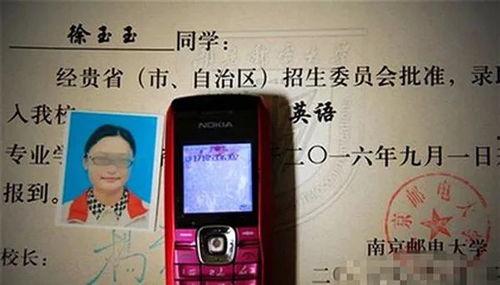 徐玉玉 同学：
经贵省（市、自治区）招生委员会批准，录
入我校 英语
专业学 二〇一六年九月一日
报到。
NOKIA
南京邮电大学
校长：
二〇
京邮电大